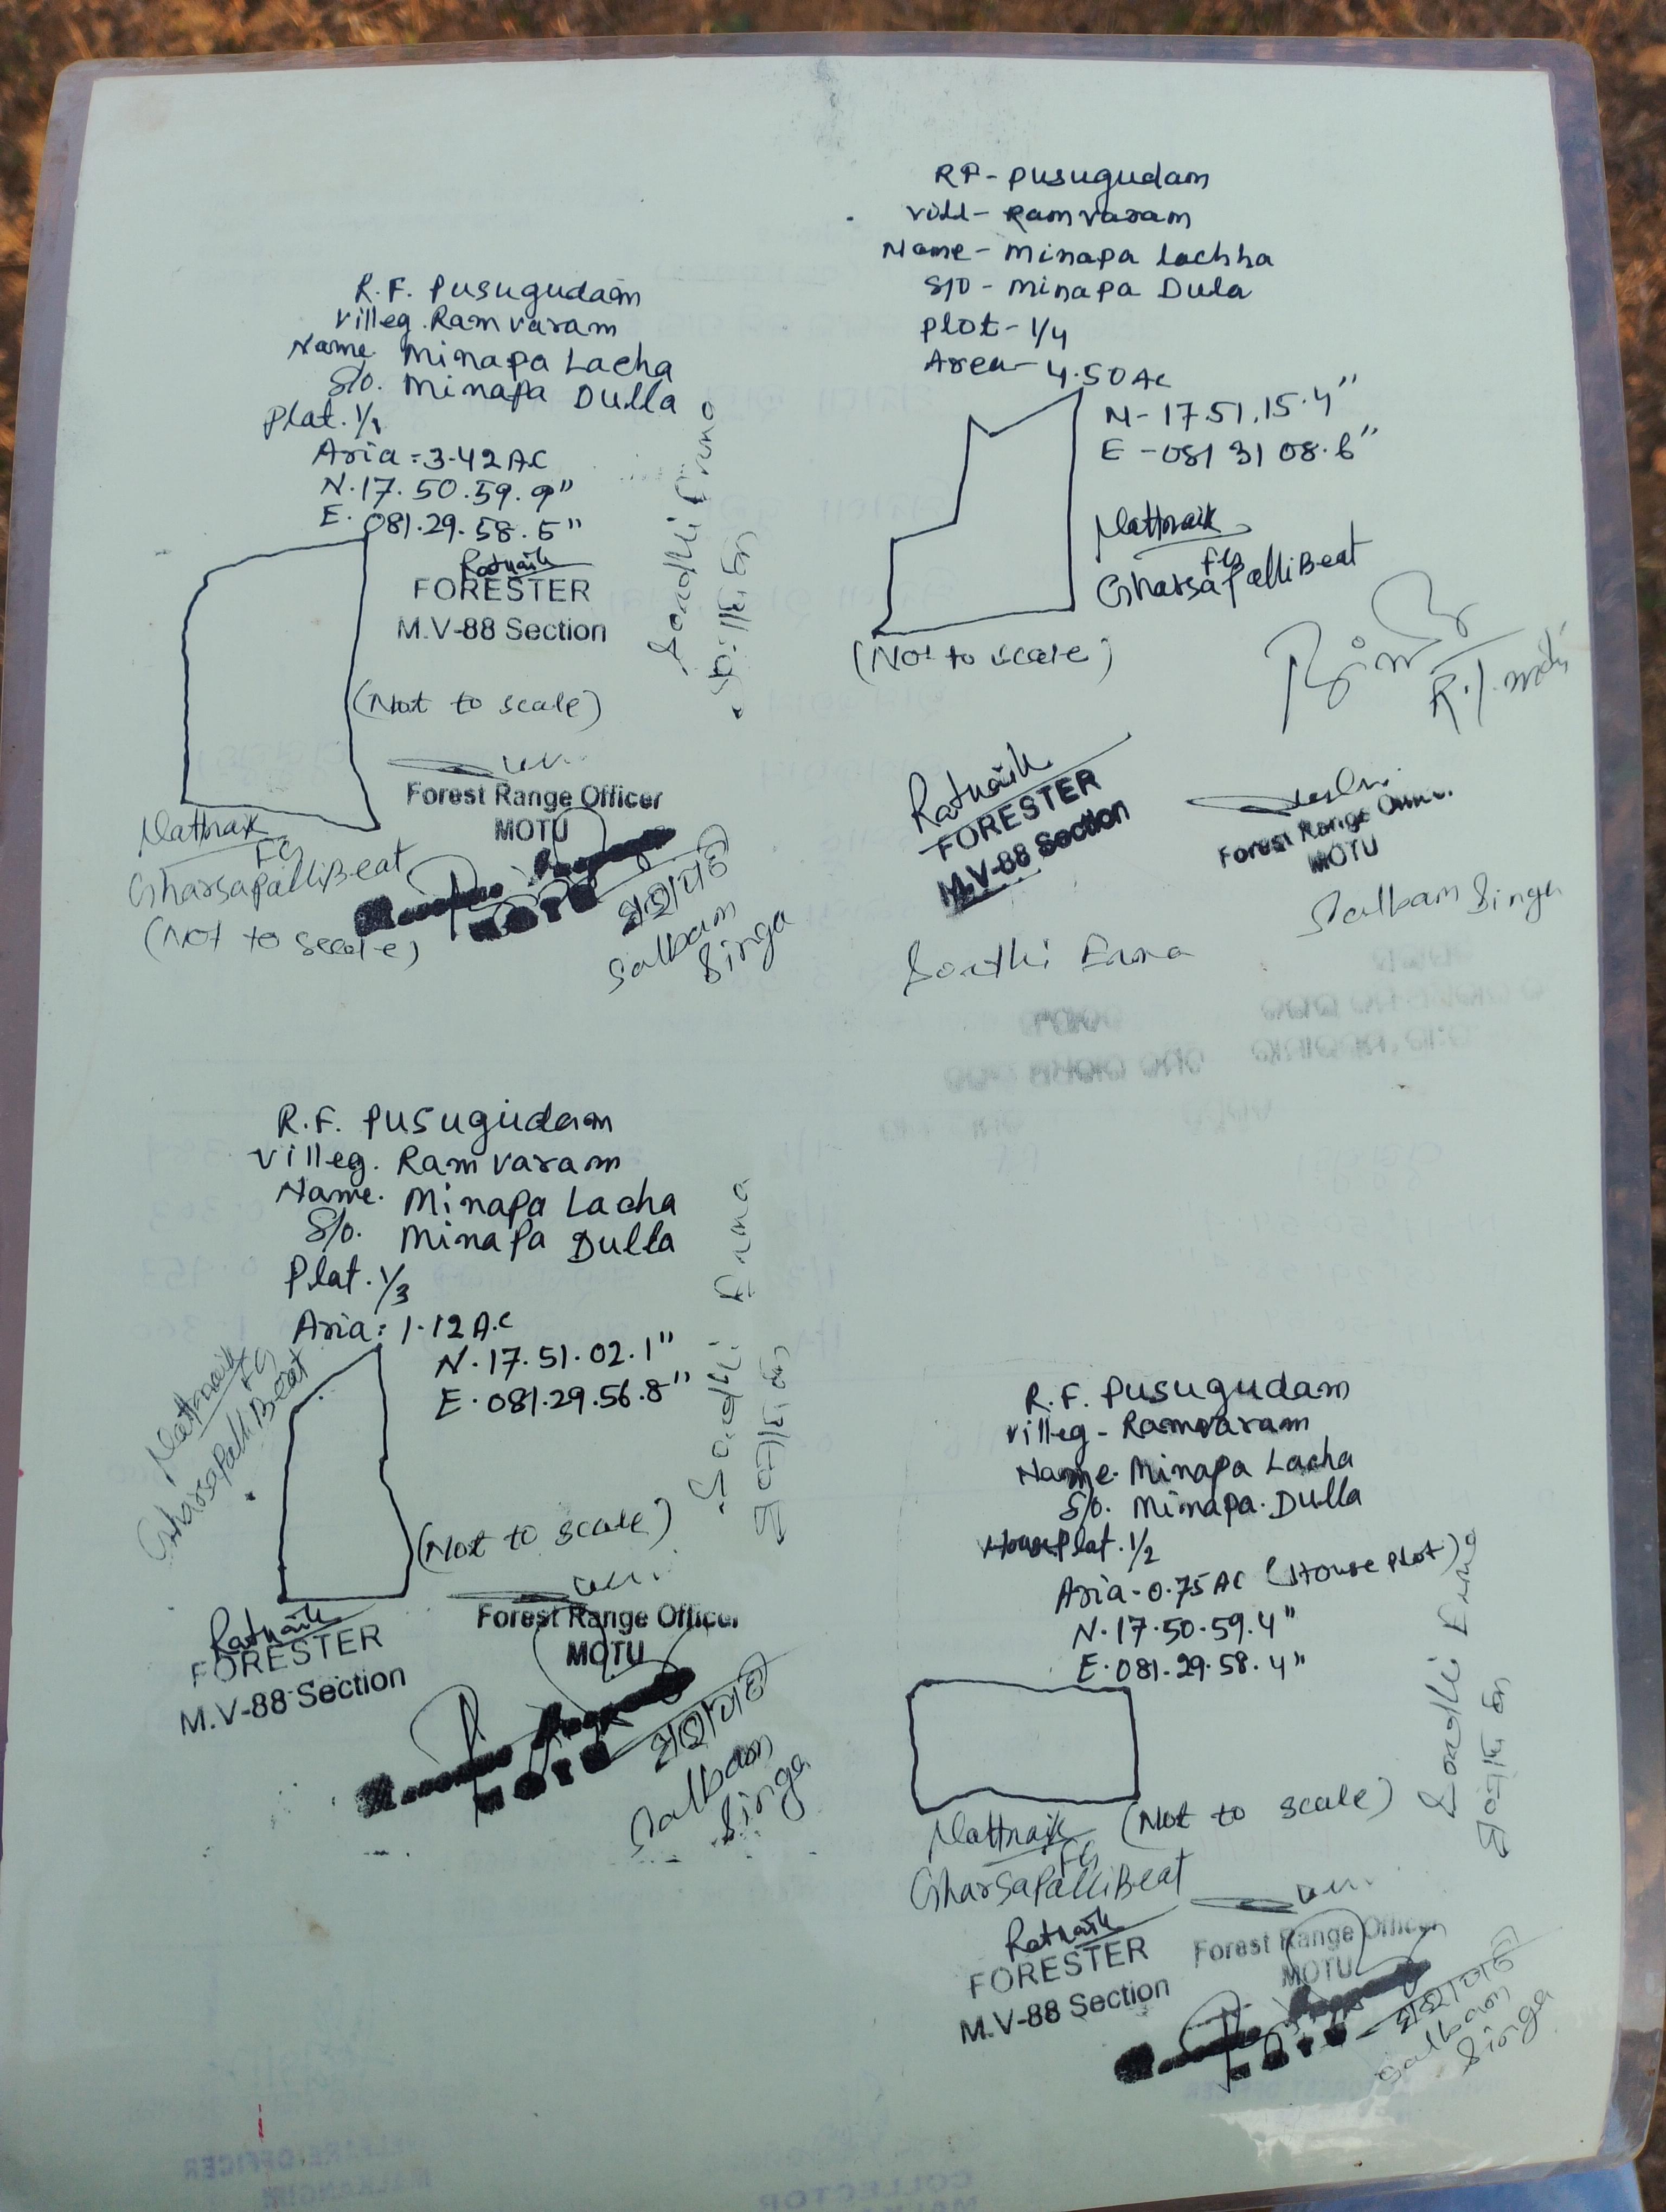 R.F. Pusugudam
Villeg. Ramvaram
Name. Minapa Lacha
S/o. Minapa Dulla
Plat. 1/1
Aria = 3.42 AC
N. 17. 50. 59. 9"
E. 081. 29. 58. 5"
Ratnaik
FORESTER
M.V-88 Section
(Not to scale)
Forest Range Officer
MOTU
Mattnaik
FG
GharsapalliBeat
(Not to scale)
Salbam
Singa
RF- Pusugudam
Vill- Ramvaram
Name- Minapa Lachha
S/o - Minapa Dula
Plot- 1/4
Area- 4.50 AC
N- 17 51. 15.4"
E -081 31 08.6"
Mattnaik
FG
GharsapalliBeat
(Not to scale)
R.I. motu
Ratnaik
FORESTER
M.V-88 Section
Forest Range Officer
MOTU
Salbam Singa
Soathi Erma
R.F. Pusugudam
Villeg. Ramvaram
Name. Minapa Lacha
S/o. Minapa Dulla
Plat. 1/3
Aria = 1.12 A.C
N. 17. 51. 02. 1"
E. 081. 29. 56. 8"
Mattnaik
FG
GharsapalliBeat
(Not to scale)
Ratnaik
FORESTER
M.V-88 Section
Forest Range Officer
MOTU
Salbam
Singa
R.F. Pusugudam
Villeg - Ramvaram
Name. Minapa Lacha
S/o. Minapa. Dulla
House Plat. 1/2
Aria - 0.75 AC (House Plot)
N. 17. 50. 59. 4"
E. 081. 29. 58. 4"
(Not to scale)
Mattnaik
FG
GharsapalliBeat
Ratnaik
FORESTER
M.V-88 Section
Forest Range Officer
MOTU
Salbam
Singa